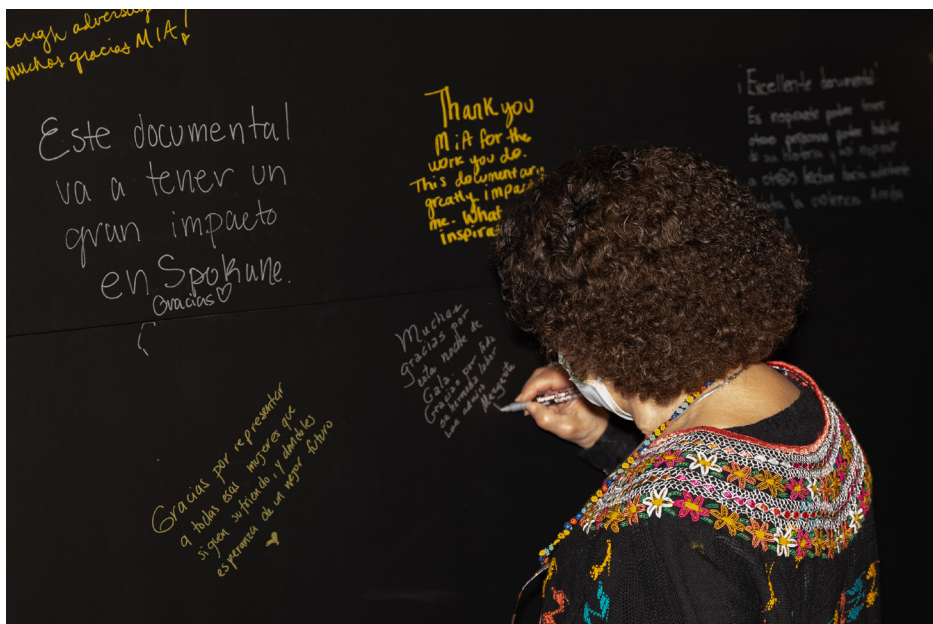 ough adversity
muchas gracias MIA!
Este documental
va a tener un
gran impacto
en Spokane.
Gracias♡
Thank you
MiA for the
work you do.
This documentary
greatly impac
me. What
inspira
¡Excellente documental!
Es
poder
la violencia
Muchas
gracias por
esta noche de
Gala.
Gracias por
labor
Gracias por representar
a todas esas mujeres que
siguen sufriendo, y dandoles
esperanza de un mejor futuro